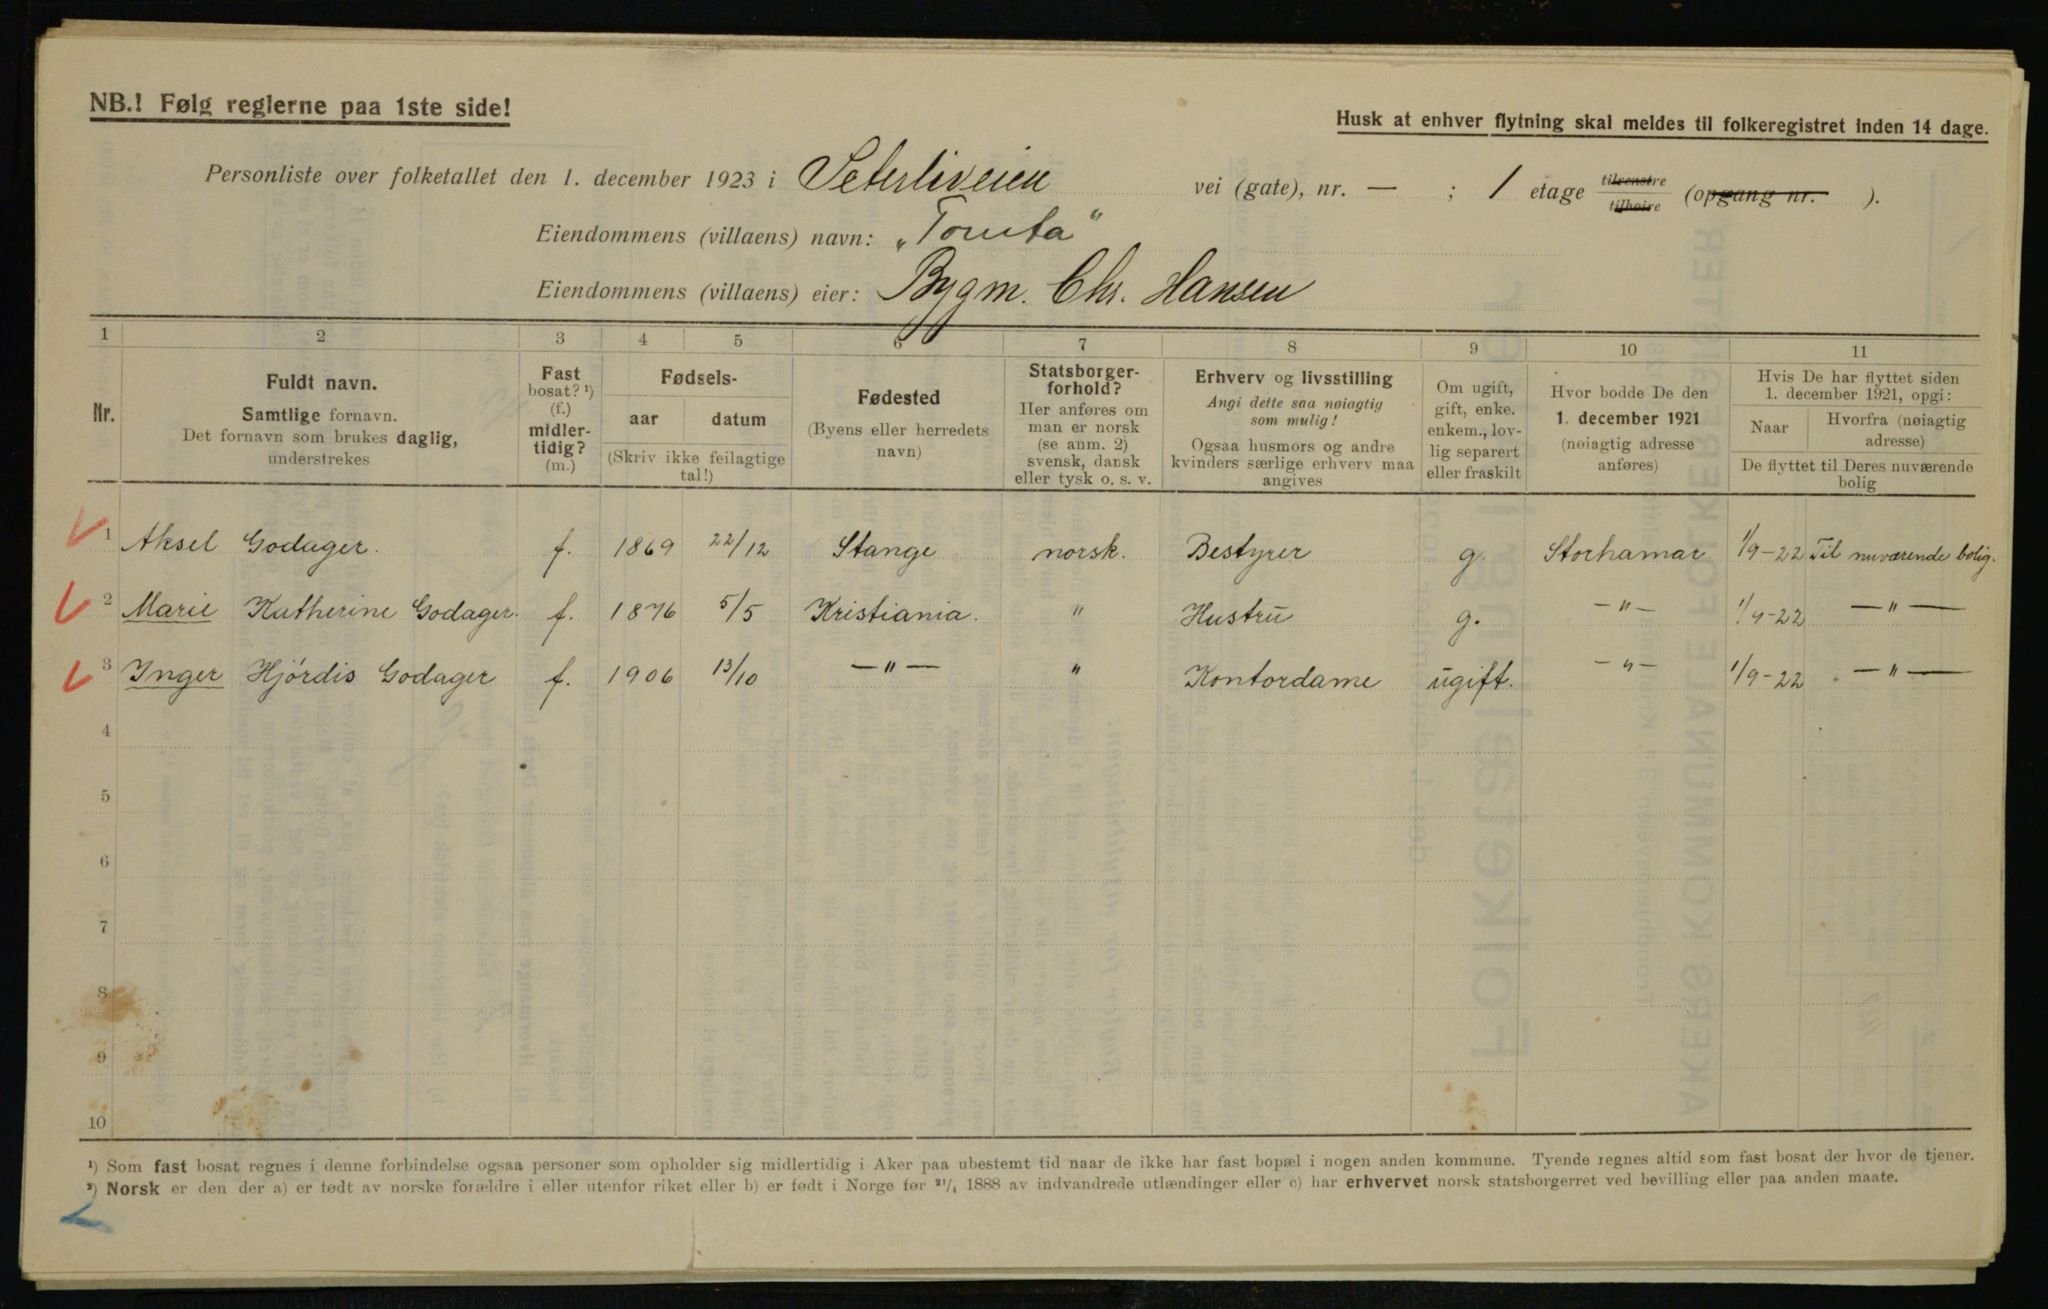 NB.! Følg reglerne paa 1ste side!
Husk at enhver flytning skal meldes til folkeregistret inden 14 dage.
Personliste over folketallet den 1. december 1923 i Seterliveien vei (gate), nr. — ; 1 etage tilvenstre tilhøire (opgang nr. ).
Eiendommens (villaens) navn: „Tomta"
Eiendommens (villaens) eier: Bygm. Chr. Hansen
1 2 3 4 5 6 7 8 9 10 11
Nr.
Fuldt navn.
Samtlige fornavn.
Det fornavn som brukes daglig,
understrekes
Fast
bosat? ¹)
(f.)
midler-
tidig?
(m.)
Fødsels-
aar datum
(Skriv ikke feilagtige
tal!)
Fødested
(Byens eller herredets
navn)
Statsborger-
forhold?
Her anføres om
man er norsk
(se anm. 2)
svensk, dansk
eller tysk o. s. v.
Erhverv og livsstilling
Angi dette saa nøiagtig
som mulig!
Ogsaa husmors og andre
kvinders særlige erhverv maa
angives
Om ugift,
gift, enke.
enkem., lov-
lig separert
eller fraskilt
Hvor bodde De den
1. december 1921
(nøiagtig adresse
anføres)
Hvis De har flyttet siden
1. december 1921, opgi:
Naar
Hvorfra (nøiagtig
adresse)
De flyttet til Deres nuværende
bolig
1 Aksel Godager. f. 1869 22/12 Stange norsk. Bestyrer g. Storhamar 1/9-22 Til nuværende bolig.
2 Marie Katherine Godager. f. 1876 5/5 Kristiania. " Hustru g. —"— 1/9-22 —"—
3 Inger Hjördis Godager f. 1906 13/10 —"— " Kontordame ugift. —"— 1/9-22 —"—
4
5
6
7
8
9
10
¹) Som fast bosat regnes i denne forbindelse ogsaa personer som opholder sig midlertidig i Aker paa ubestemt tid naar de ikke har fast bopæl i nogen anden kommune. Tyende regnes altid som fast bosat der hvor de tjener.
²) Norsk er den der a) er født av norske forældre i eller utenfor riket eller b) er født i Norge før 21/4 1888 av indvandrede utlændinger eller c) har erhvervet norsk statsborgerret ved bevilling eller paa anden maate.